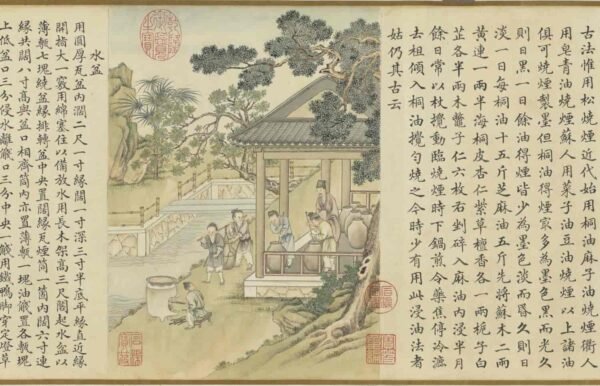 古法惟用松燒煙近代始用桐油麻子油燒煙衢人
用皂青油燒煙蘇人用菜子油豆油燒煙以上諸油
俱可燒煙製墨但桐油得煙最多為墨色黑而光久
則日黑一日餘油得煙皆少為墨色淡而昏久則日
淡一日每桐油十五斤芝麻油五斤先將蘇木二兩
黃連一兩半海桐皮杏仁紫草檀香各一兩梔子白
芷各半兩木鱉子仁六枚右剉碎入麻油內浸半月
餘日常以杖攪動臨燒煙時下鍋煎令藥焦停冷漉
去柤傾入桐油攪勻燒之今時少有用此浸油法者
姑仍其古云
水盆
用圓厚瓦盆內闊二尺一寸緣闊一寸深三寸半底平緣直近緣
開指大一竅用綿塞住以備放水用長木架高三尺閣起水盆以
薄甎七塊繞盆緣排轉盆中央置闊緣瓦煙筒一箇內闊六寸連
緣共闊八寸高與盆口相齊筒內亦置薄甎一塊油醆置各甎塊
上低盆口三分浸水離醆口三分中央一醆用鐵鴨腳穿定燈草